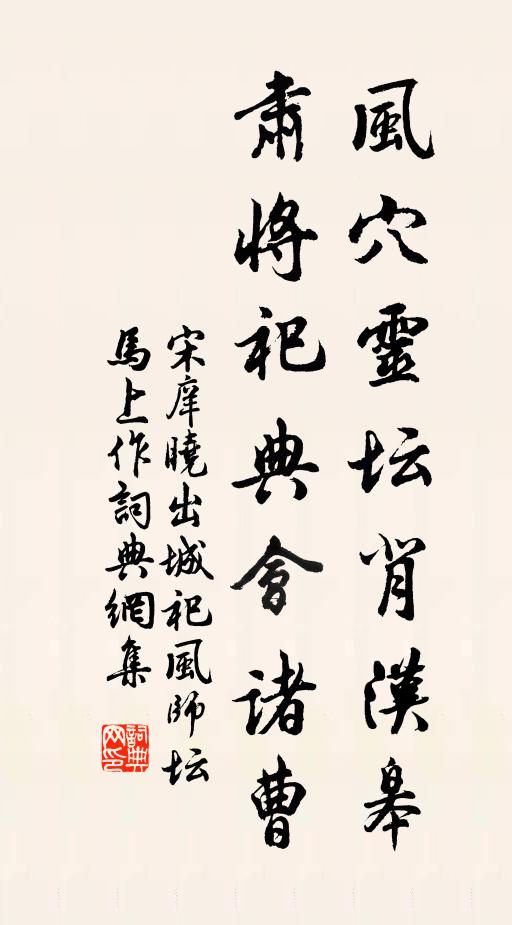 風穴靈坛肖漢皋
肅將祀典會諸曹
宋庠曉出城祀風師坛
馬上作詞典網集
詞典网印